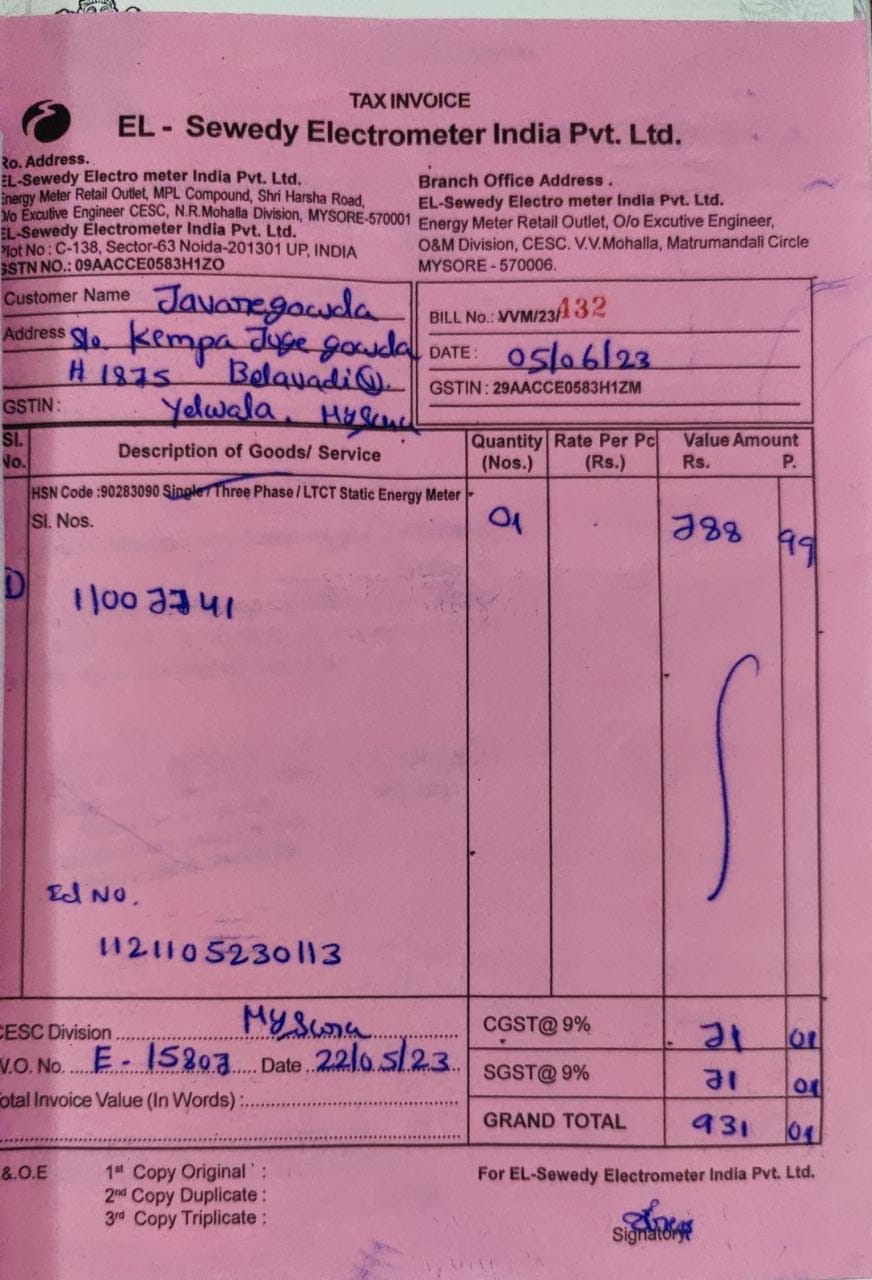 TAX INVOICE
EL - Sewedy Electrometer India Pvt. Ltd.
Ro. Address.
EL-Sewedy Electro meter India Pvt. Ltd.
Energy Meter Retail Outlet, MPL Compound, Shri Harsha Road,
O/o Excutive Engineer CESC, N.R.Mohalla Division, MYSORE-570001
EL-Sewedy Electrometer India Pvt. Ltd.
Plot No : C-138, Sector-63 Noida-201301 UP, INDIA
GSTN NO.: 09AACCE0583H1ZO
Branch Office Address .
EL-Sewedy Electro meter India Pvt. Ltd.
Energy Meter Retail Outlet, O/o Excutive Engineer,
O&M Division, CESC. V.V.Mohalla, Matrumandali Circle
MYSORE - 570006.
Customer Name Javaregowda
Address S/o. Kempa Juge gowda
# 1875 Belavadi (V).
GSTIN : Yelwala, Mysuru
BILL No.: VVM/23/132
DATE : 05/06/23
GSTIN : 29AACCE0583H1ZM
Sl. No. Description of Goods/ Service Quantity (Nos.) Rate Per Pc (Rs.) Value Amount Rs. P.
HSN Code :90283090 Single / Three Phase / LTCT Static Energy Meter
Sl. Nos. 01 788 99
11007741
Ed No.
1121105230113
CESC Division Mysuru CGST@ 9% 71 01
W.O. No. E - 15807 Date 22/05/23 SGST@ 9% 71 01
Total Invoice Value (In Words) :
GRAND TOTAL 931 01
&.O.E
1st Copy Original :
2nd Copy Duplicate :
3rd Copy Triplicate :
For EL-Sewedy Electrometer India Pvt. Ltd.
Signatory